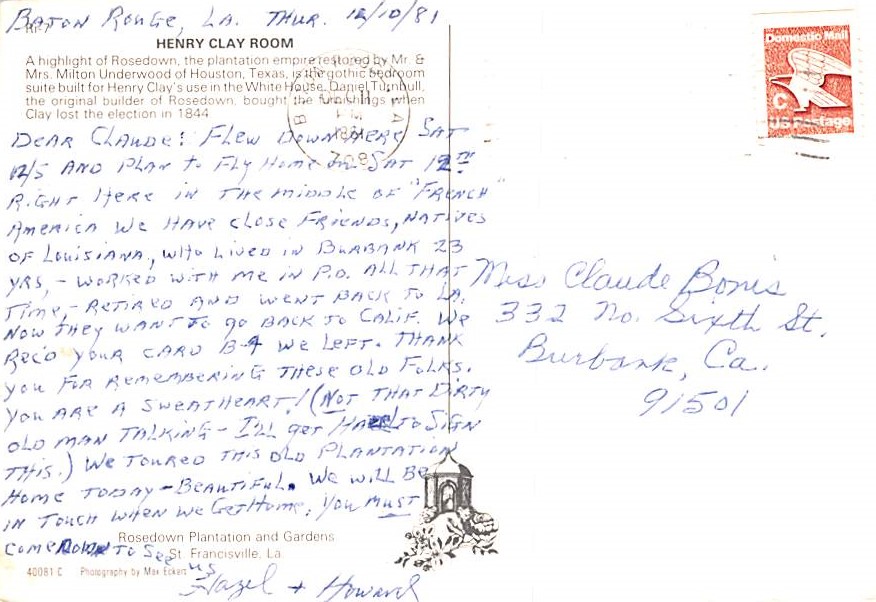 Baton Rouge, La. Thur. 12/10/81
HENRY CLAY ROOM
A highlight of Rosedown, the plantation empire restored by Mr. &
Mrs. Milton Underwood of Houston, Texas, is the gothic bedroom
suite built for Henry Clay's use in the White House. Daniel Turnbull,
the original builder of Rosedown, bought the furnishings when
Clay lost the election in 1844
Dear Claude: Flew down here Sat
12/5 and plan to fly home on Sat 12TH
Right here in the middle of "French"
America we have close friends, natives
of Louisiana, who lived in Burbank 23
yrs, - worked with me in P.O. all that
time, - retired and went back to La.
Now they want to go back to Calif. We
rec'd your card B-4 we left. Thank
you for remembering these old folks.
You are a sweatheart! (Not that dirty
old man talking - I'll get Hazel to sign
this.) We toured this old plantation
home today - beautiful. We will be
in touch when we get home. You must
come down to see
us
Hazel + Howard
Rosedown Plantation and Gardens
St. Francisville, La.
40081 C Photography by Max Eckert
Domestic Mail
C
US Postage
Miss Claude Bonis
332 No. Sixth St.
Burbank, Ca.
91501